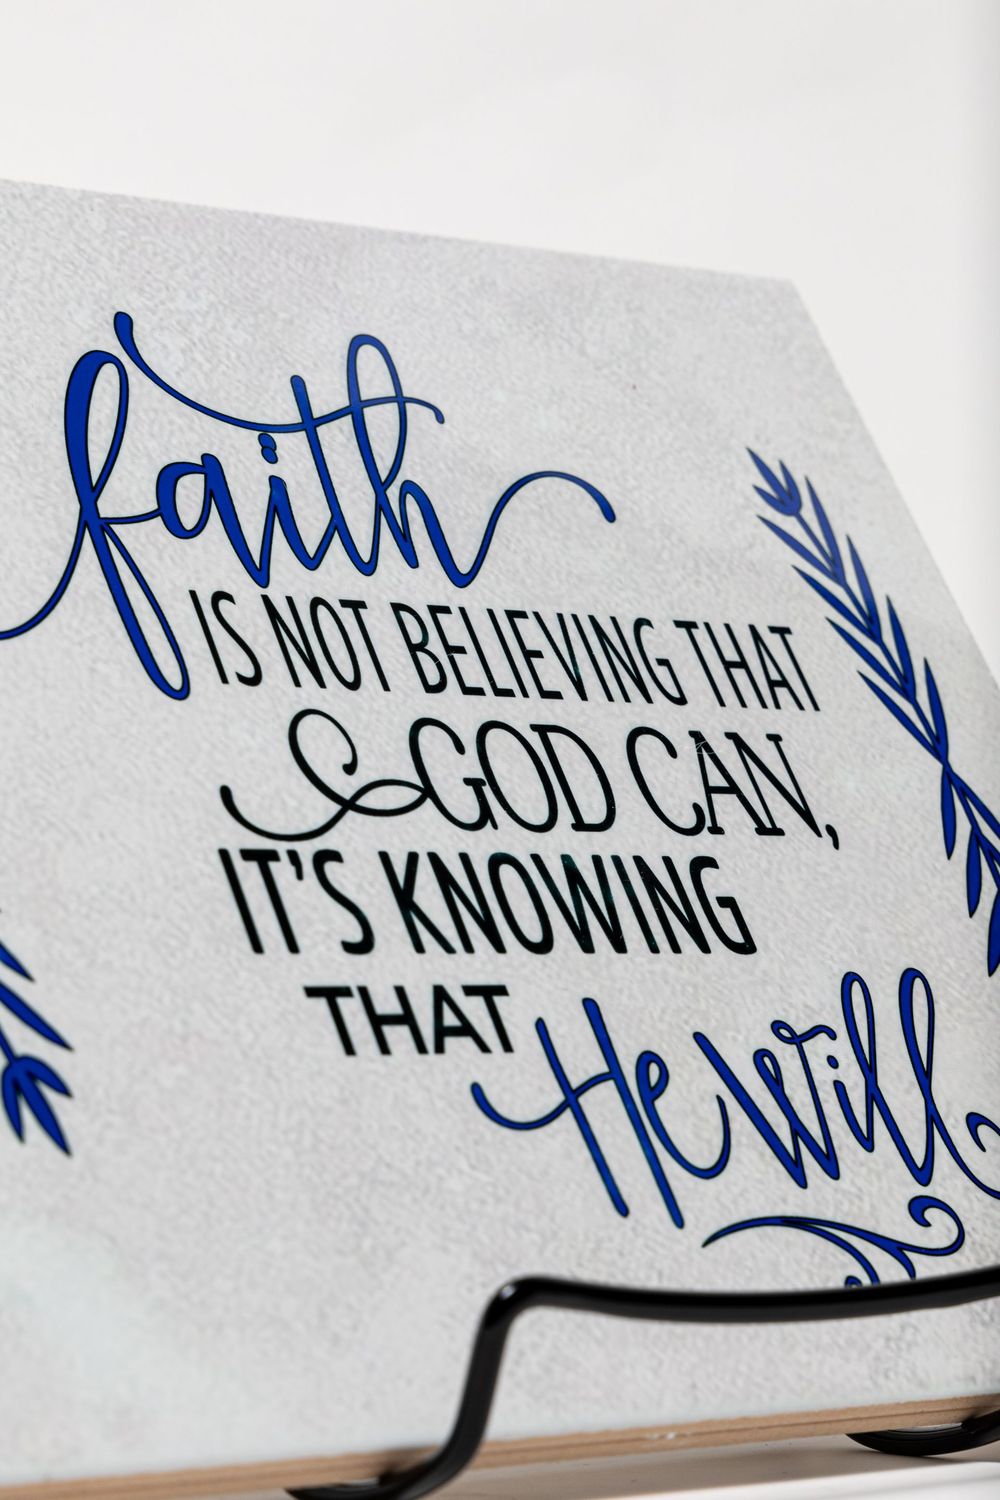 faith
IS NOT BELIEVING THAT
GOD CAN,
IT'S KNOWING
THAT He Will